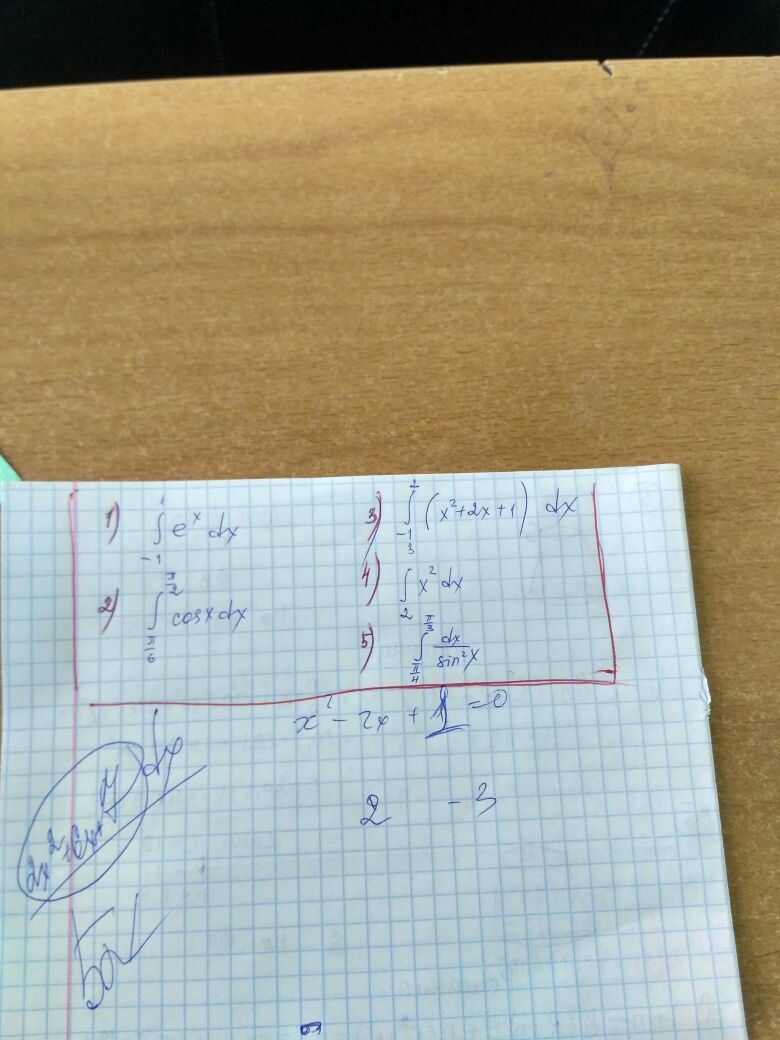 1) ∫₋₁¹ eˣ dx
2) ∫_{π/6}^{π/2} cosx dx
3) ∫₋₁² (x²+2x+1) dx
4) ∫₂³ x² dx
5) ∫_{π/4}^{π/3} dx/sin²x
x² - 2x + 1 = 0
2 - 3
dx